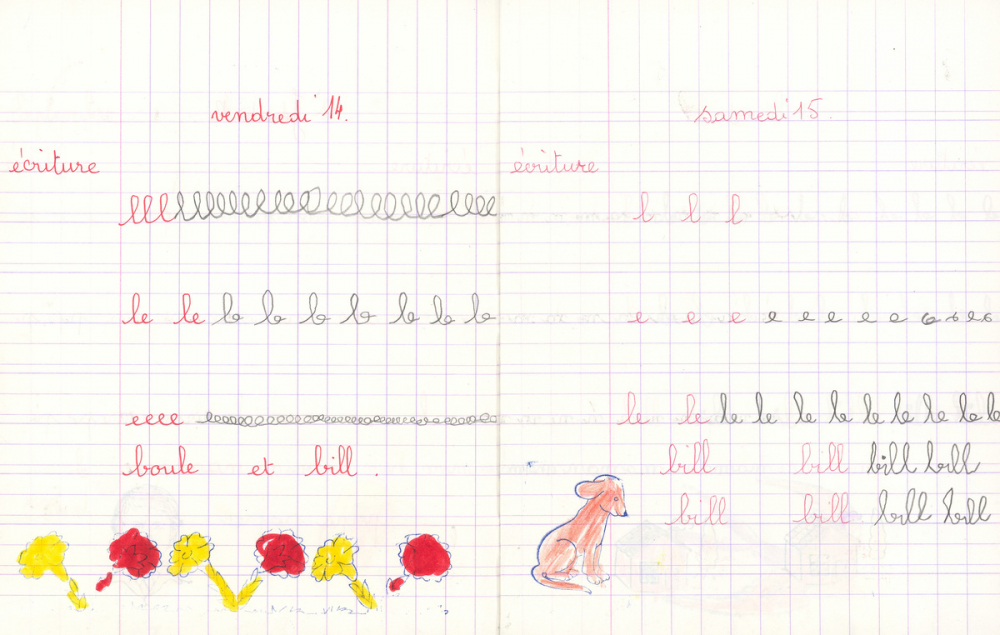 vendredi 14.
écriture
lllllllllllllllllllllllll
le le le le le le le le le
eeee eeeeeeeeeeeeeeeeeeeeeeeeeeeeee
boule et bill.
samedi 15.
écriture
l l l
e e e e e e e e e e e e e
le le le le le le le le le le le
bill bill bill bill
bill bill bill bill